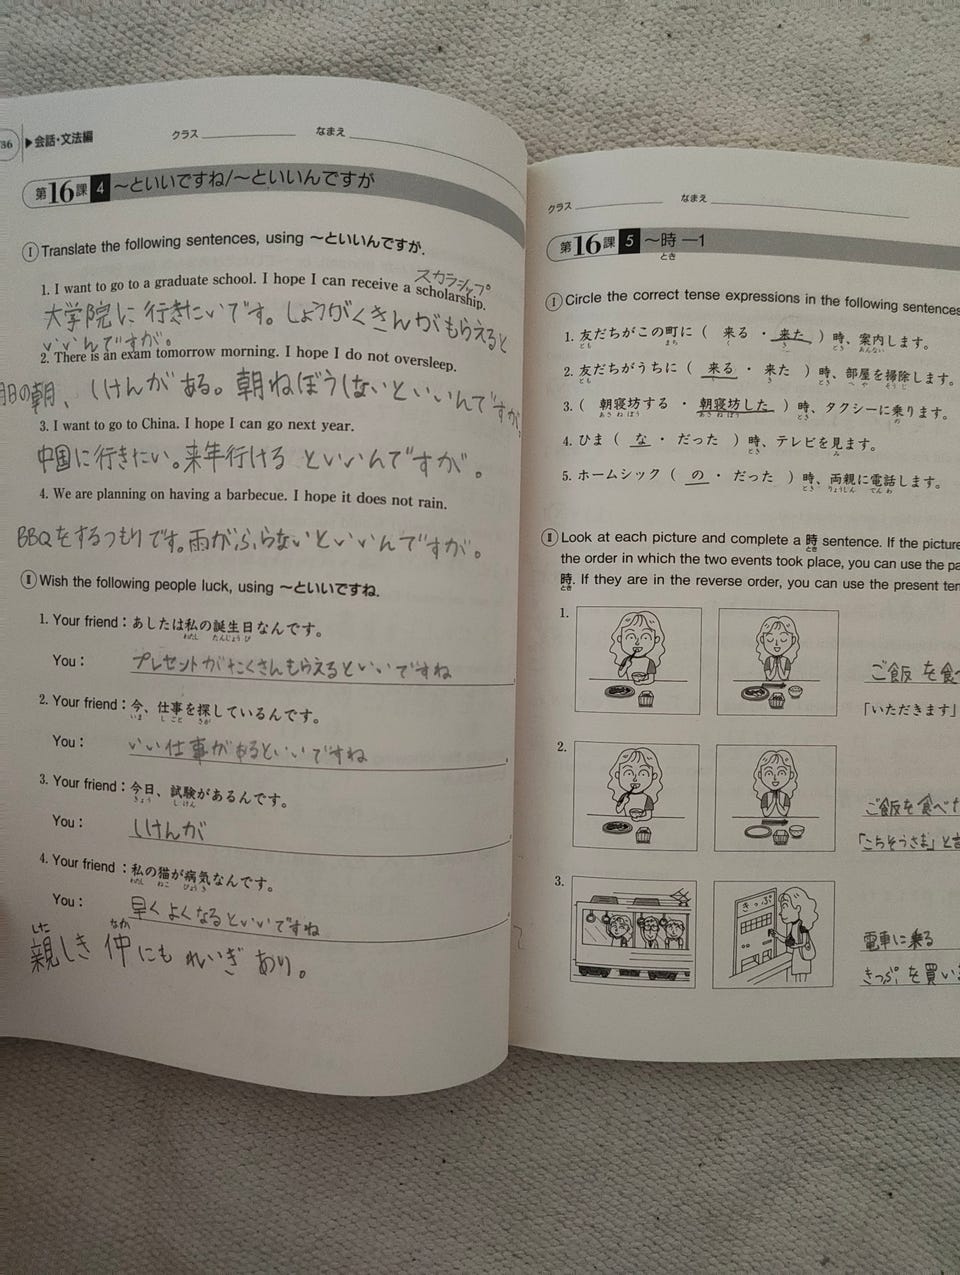 36 ▶会話・文法編
クラス なまえ
第16課 4 〜といいですね/〜といいんですが
Ⅰ Translate the following sentences, using 〜といいんですが.
スカラシップ
1. I want to go to a graduate school. I hope I can receive a scholarship.
大学院に行きたいです。しょうがくきんがもらえると
いいんですが。
2. There is an exam tomorrow morning. I hope I do not oversleep.
日の朝、しけんがある。朝ねぼうしないといいんですが。
3. I want to go to China. I hope I can go next year.
中国に行きたい。来年行けるといいんですが。
4. We are planning on having a barbecue. I hope it does not rain.
BBQをするつもりです。雨がふらないといいんですが。
Ⅱ Wish the following people luck, using 〜といいですね.
1. Your friend：あしたは私の誕生日なんです。
わたし たんじょうび
You： プレゼントがたくさんもらえるといいですね
2. Your friend：今、仕事を探しているんです。
いま しごと さが
You： いい仕事があるといいですね
3. Your friend：今日、試験があるんです。
きょう しけん
You： しけんが
4. Your friend：私の猫が病気なんです。
わたし ねこ びょうき
You： 早くよくなるといいですね
した なか
親しき仲にもれいぎあり。
クラス なまえ
第16課 5 〜時―1
とき
Ⅰ Circle the correct tense expressions in the following sentences
1. 友だちがこの町に（ 来る ・ 来た ）時、案内します。
とも まち く き とき あんない
2. 友だちがうちに（ 来る ・ 来た ）時、部屋を掃除します。
とも く き とき へや そうじ
3.（ 朝寝坊する ・ 朝寝坊した ）時、タクシーに乗ります。
あさねぼう あさねぼう とき の
4. ひま（ な ・ だった ）時、テレビを見ます。
とき み
5. ホームシック（ の ・ だった ）時、両親に電話します。
とき りょうしん でんわ
Ⅱ Look at each picture and complete a 時 sentence. If the picture
とき
the order in which the two events took place, you can use the pa
時. If they are in the reverse order, you can use the present ten
とき
1.
ご飯を食べ
「いただきます」
2.
ご飯を食べた
「ごちそうさま」と言
3.
きっぷ
電車に乗る
きっぷを買い